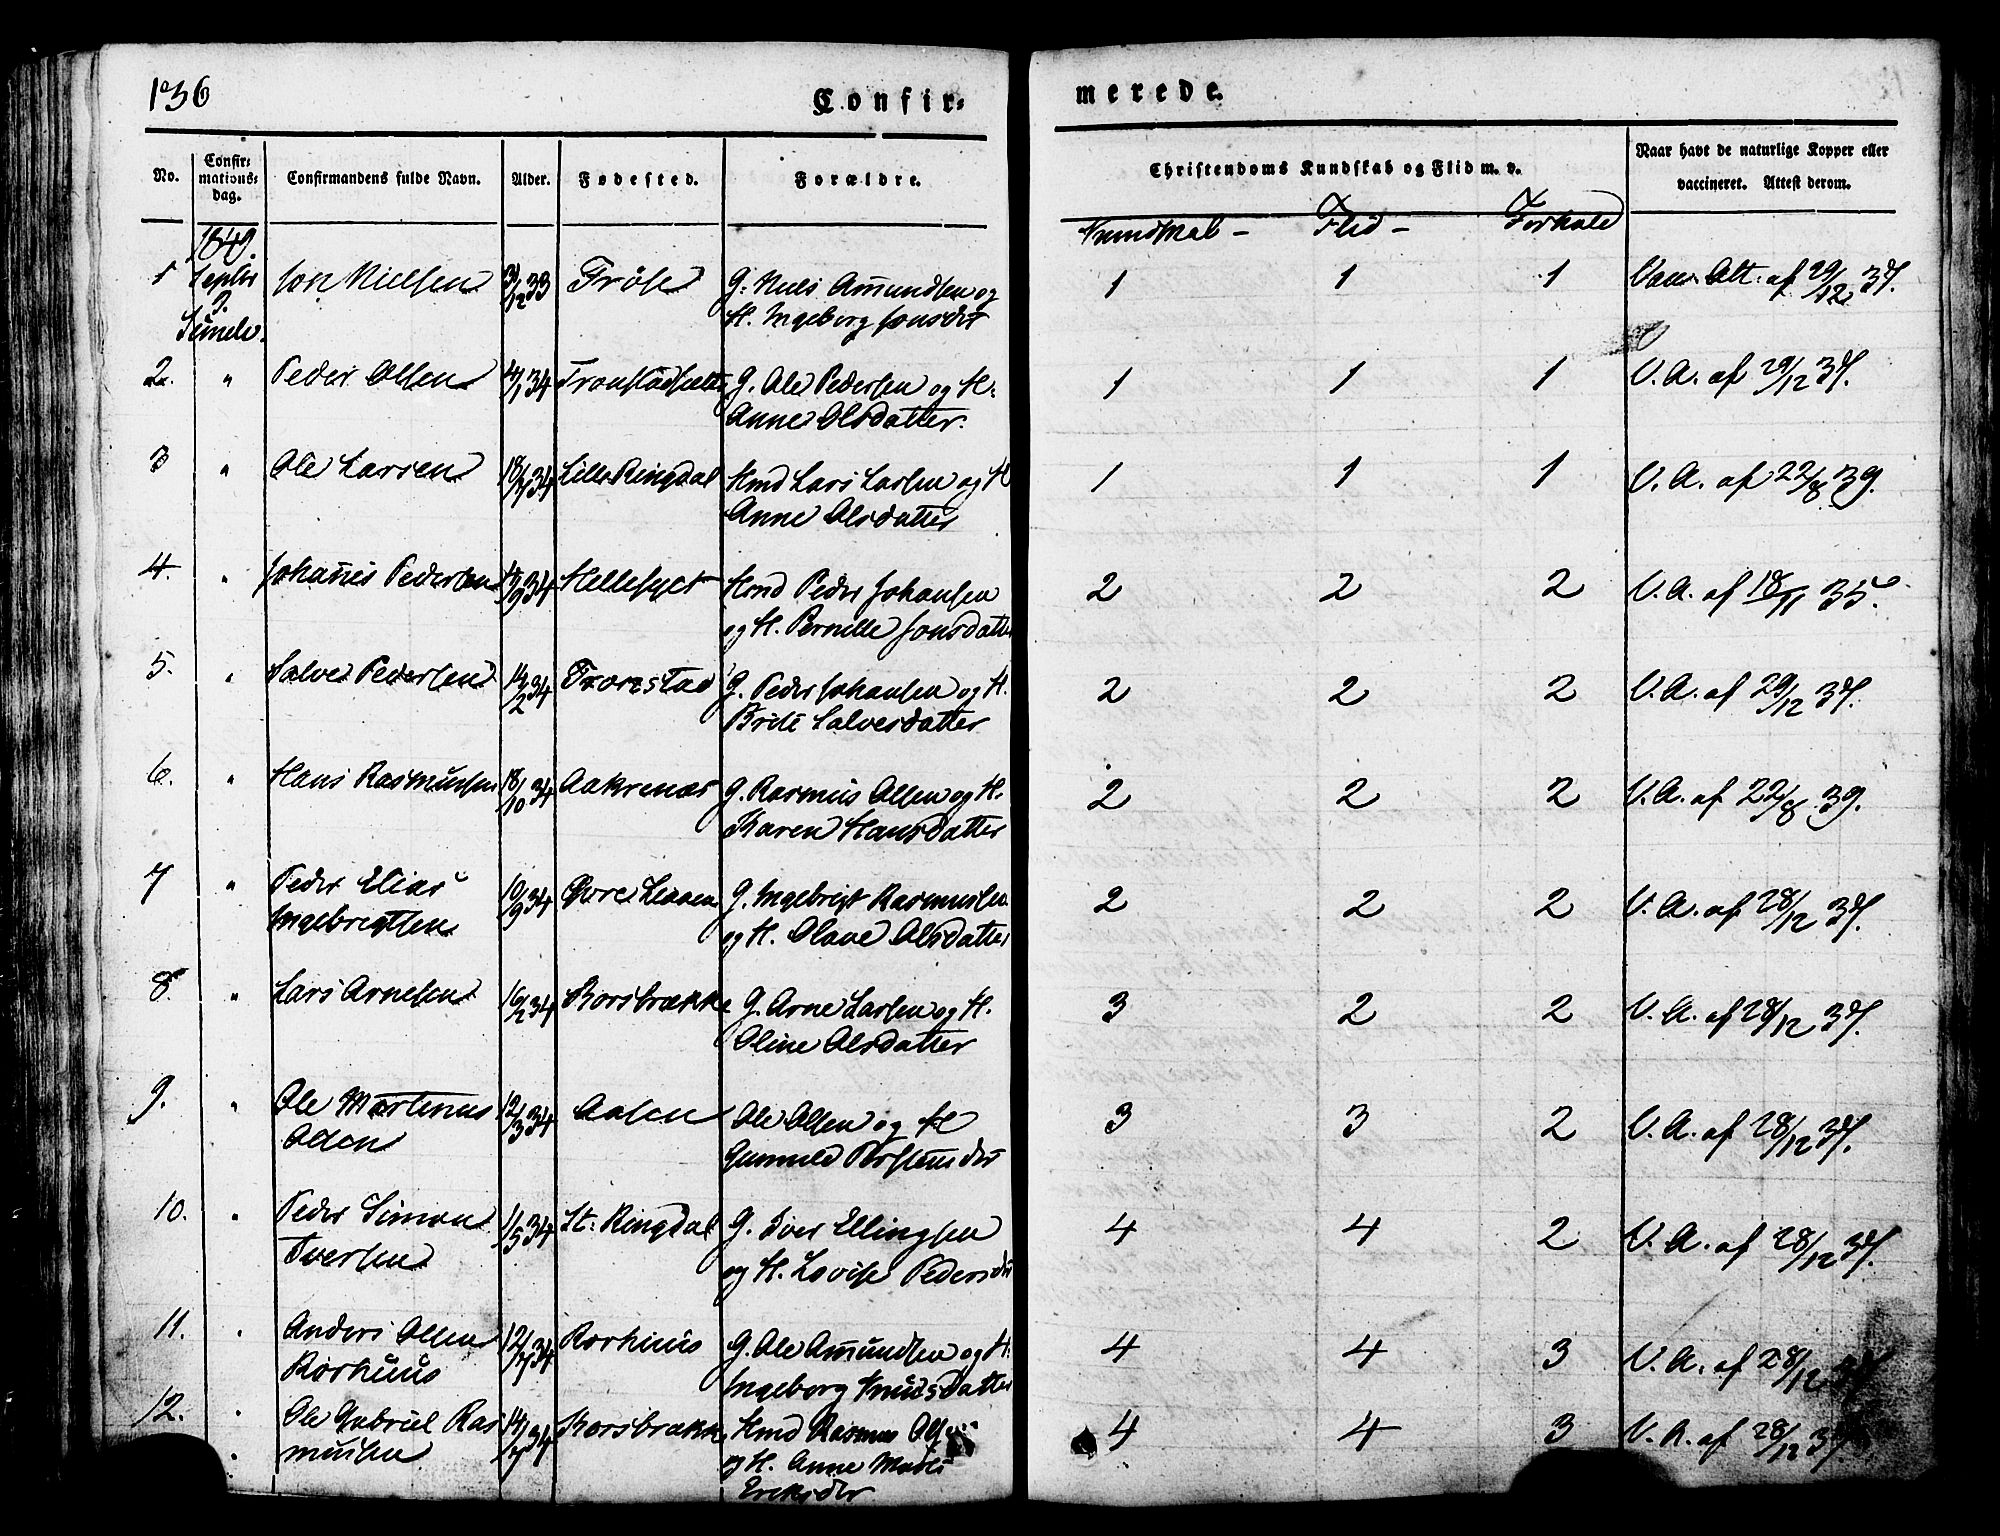 136
Confir-
merede.
No.
Confir-
mations-
dag.
Confirmandens fulde Navn.
Alder.
Fødested.
Forældre.
Christendoms Kundskab og Flid m. v.
Naar havt de naturlige Kopper eller
vaccineret. Attest derom.
Kundskab - Flid - Forhold
1849.
1 Septbr Jon Nielsen 31/12 33 Frøise G. Niels Amundsen og 1 1 1 Vacc. Att. af 29/12 37.
9. H. Ingeborg Jonsdtr
Sunelv.
2. " Peder Olsen 4/1 34 G. Ole Pedersen og H. 1 1 1 V. A. af 29/12 37.
Anne Olsdatter.
3 " Ole Larsen 18/7 34 Lille Ringdal Hmd Lars Larsen og H 1 1 1 V. A. af 22/8 39.
Anne Olsdatter
4. " Johannes Pedersen 34 Hellesyet Hmd Peder Johansen 2 2 2 V. A. af 18/11 35.
og H. Pernille Jonsdatter
5. " Salve Pedersen 14/2 34 Tronstad G. Peder Johansen og H. 2 2 2 V. A. af 29/12 37.
Brite Salvesdatter
6. " Hans Rasmussen 18/10 34 Aakrenæs G. Rasmus Olsen og H. 2 2 2 V. A. af 22/8 39.
Karen Hansdatter
7 " Peder Elias 10/9 34 Øvre G. Ingebrigt Rasmussen 2 2 2 V. A. af 28/12 37.
Ingebrigtsen og H. Olave Olsdatter
8. " Lars Arnesen 34 Korsbrække G. Arne Larsen og H. 3 2 2 V. A. af 28/12 37.
Oline Olsdatter
9. " Ole Martinus 12/3 34 Aasen Ole Olsen og H 3 3 2 V. A. af 28/12 37.
Olsen Gunnild
10. " Peder Simon 1/5 34 St: Ringdal G. Iver Ellingsen 4 4 2 V. A. af 28/12 37.
Iversen og H. Lovise Pedersdtr
11. " Anders Olsen 12/7 34 Rørhuus G. Ole Amundsen og H. 4 4 3 V. A. af 28/12 37.
Rørhuus Ingeborg Knudsdatter
12. " Ole Gabriel Ras 14/7 34 Korsbrække Hmd Rasmus 4 4 3 V. A. af 28/12 37.
mussen og H. Anne Marte
Eriksdtr